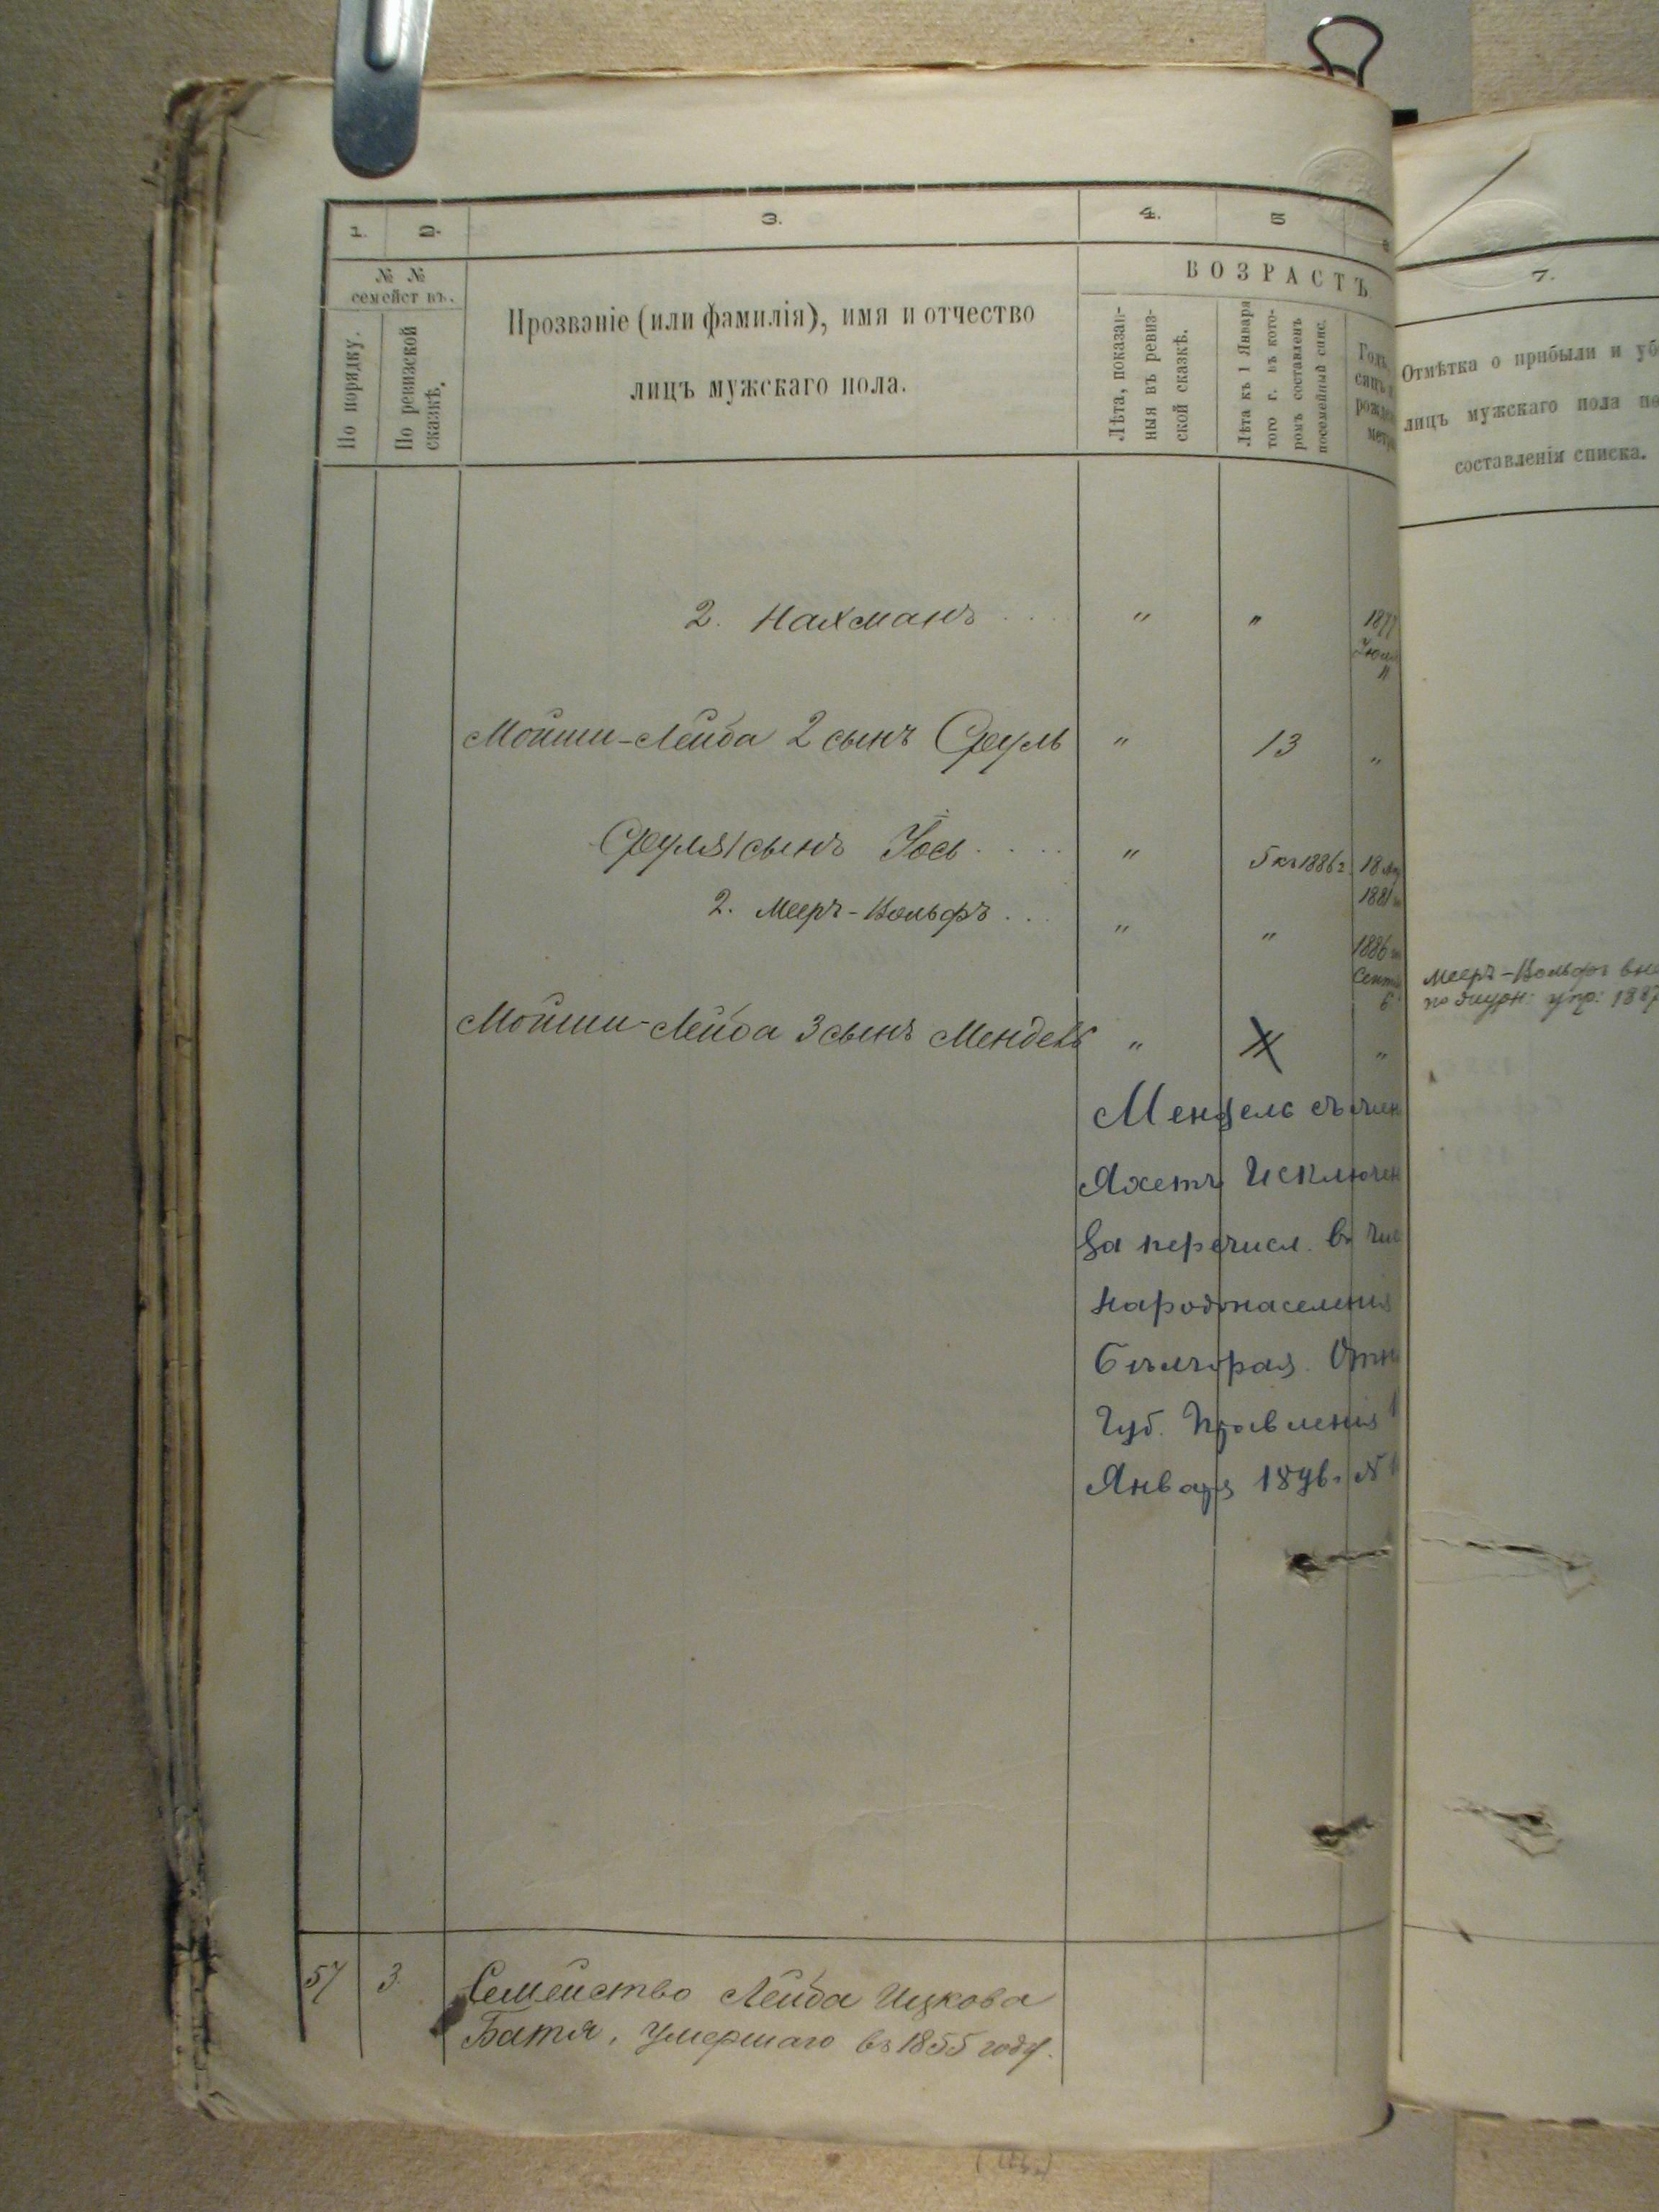 1. 2. 3. 4. 5
7.
№ №
семействъ.
По порядку.
По ревизской
сказкѣ.
Прозваніе (или фамилія), имя и отчество
лицъ мужскаго пола.
ВОЗРАСТЪ
Лѣта, показан-
ныя въ ревиз-
ской сказкѣ.
Лѣта къ 1 Января
того г. въ кото-
ромъ составленъ
посемейный спис.
Годъ,
Отмѣтка о прибыли и уб
лицъ мужскаго пола по
составленія списка.
2. Нахманъ . . . " " 1877
Іюля
11
Мойши-Лейба 2 сынъ Сруль " 13 "
Сруля 1 сынъ Іось . . . . " 5 къ 1886 г. 18
1881
2. Мееръ-Вольфъ . . . " " 1886
Сент
6
Мееръ-Вольфъ вне
по журн: упр: 1887
Мойши-Лейба 3 сынъ Мендель " "
Мендель съ
Исключен
За перечисл. въ
народонаселенія
Губ. Правленія
Января 189 г. №
57 3. Семейство Лейба Ицкова
Батя, умершаго въ 1855 году.